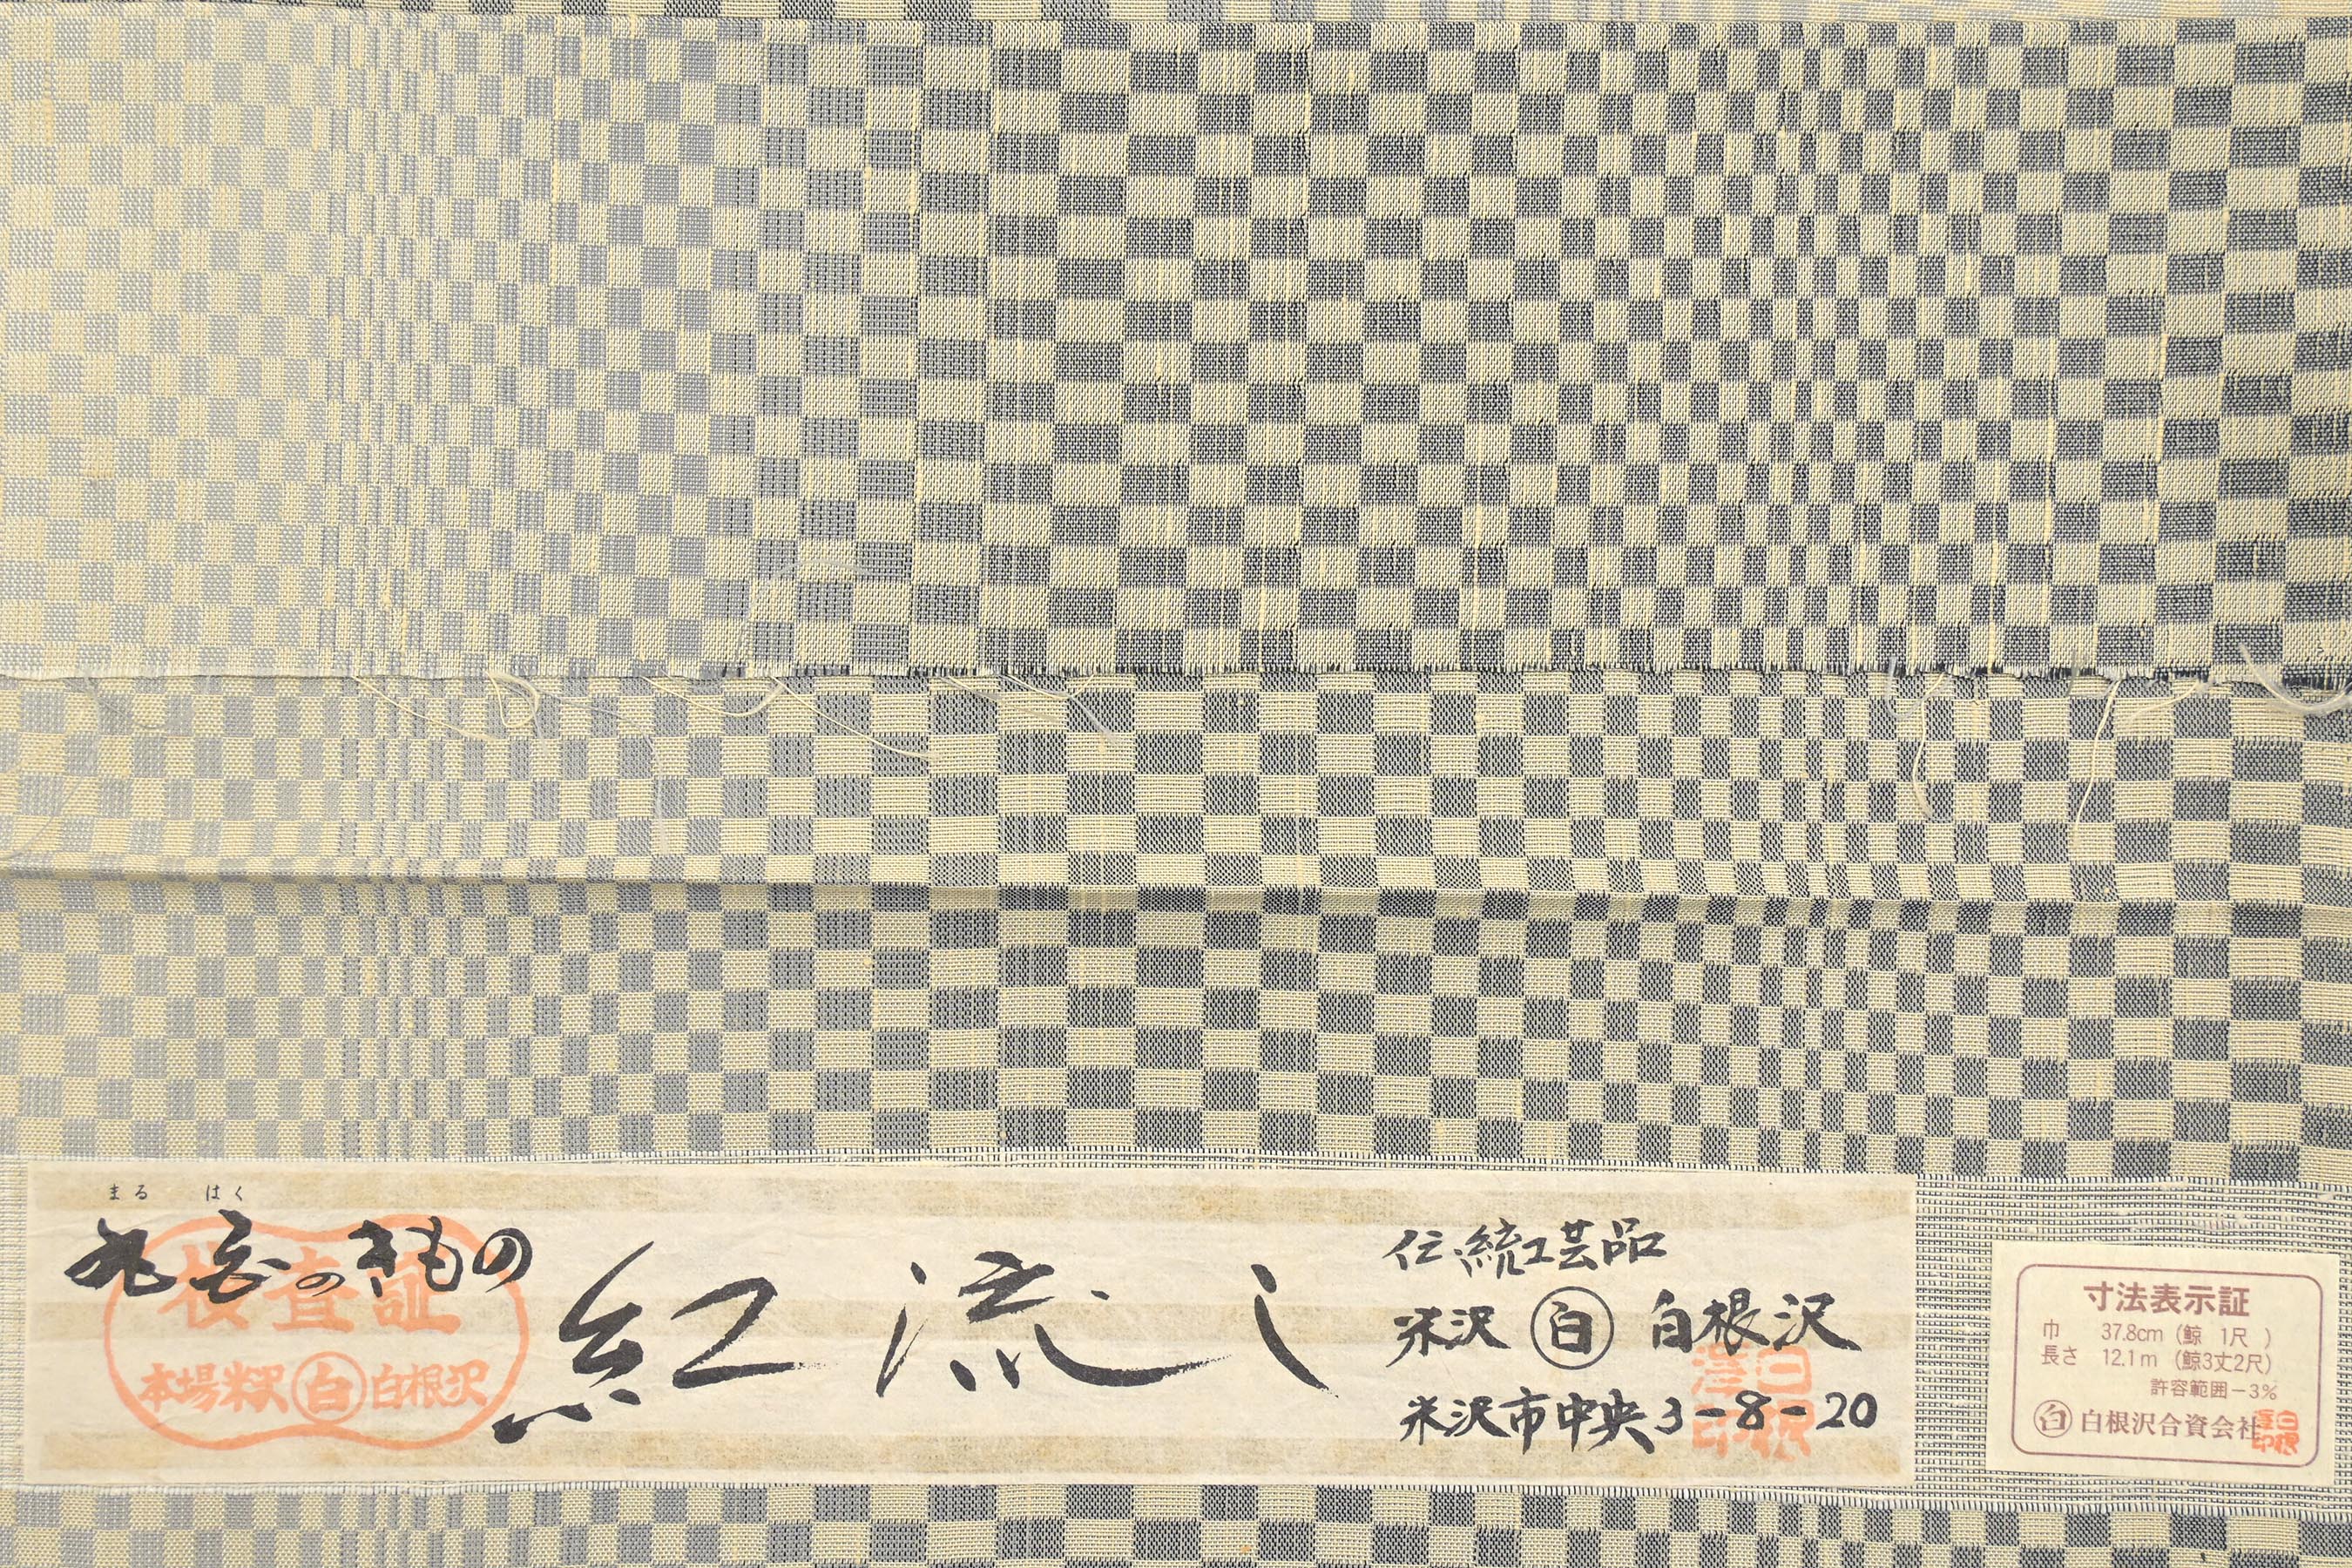 まる はく
丸白のきもの
検査証
本場米沢 白 白根沢
紅流し
伝統工芸品
米沢 白 白根沢
米沢市中央3-8-20
寸法表示証
巾 37.8cm (鯨 1尺 )
長さ 12.1m (鯨3丈2尺)
許容範囲-3%
白 白根沢合資会社